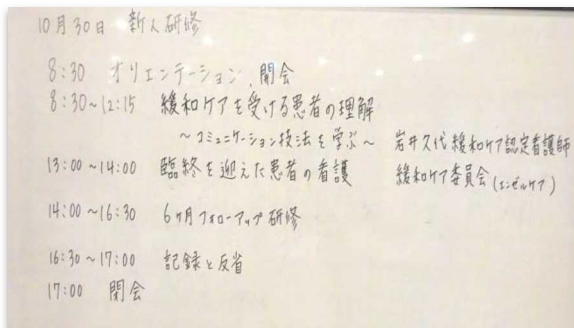 10月30日 新人研修
8:30 オリエンテーション、開会
8:30~12:15 緩和ケアを受ける患者の理解
~コミュニケーション技法を学ぶ~ 岩井久代緩和ケア認定看護師
13:00~14:00 臨終を迎えた患者の看護 緩和ケア委員会(エンゼルケア)
14:00~16:30 6ヶ月フォローアップ研修
16:30~17:00 記録と反省
17:00 閉会